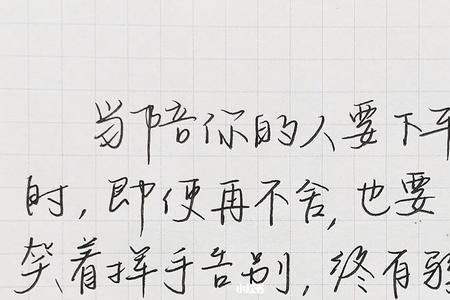 当陪你的人要下车
时,即便再不舍,也要
笑着挥手告别,终有
小红书